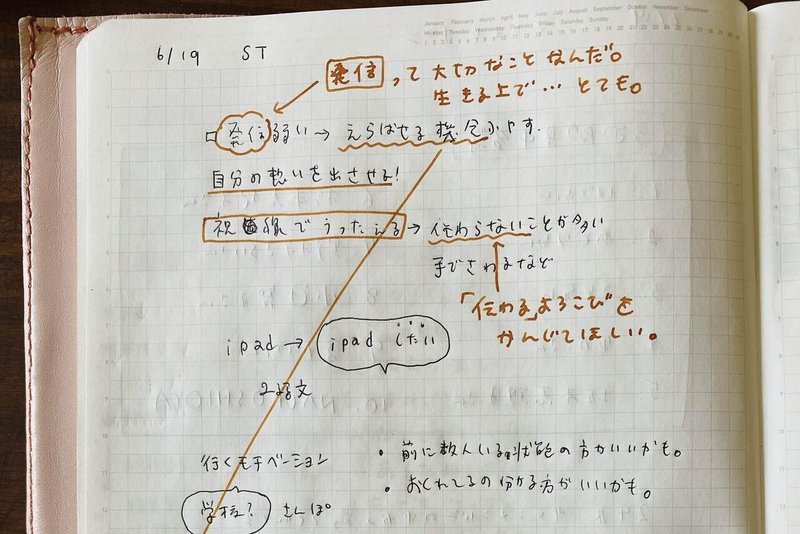 January February March April May June July August September October November December
Monday Tuesday Wednesday Thursday Friday Saturday Sunday
6/19 ST
発信って大切なことなんだ。
生きる上で…とても。
発信弱い→えらばせる機会ふやす.
自分の想いを出させる!
視線でうったえる→伝わらないことが多い
手でさわるなど
「伝わる」よろこびを
かんじてほしい。
ipad→ipadしたい
2語文
行くモチベーション
・前に数人いる状態の方がいいかも。
・おくれてるの分かる方がいいかも。
学校? さんぽ